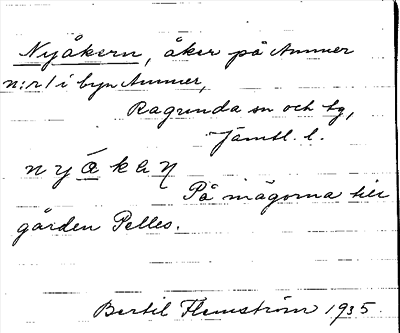 Nyåkern, åker på Ammer
n:r 1 i byn Ammer,
Ragunda sn och tg,
Jämtl. l.
n y å k e ɳ
På mågorna till
gården Pelles.
Bertil Flemström 1935.